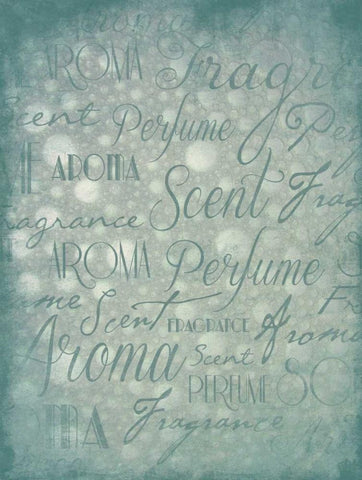 Aroma
AROMA Fragr
Scent Perfume Perf
ME AROMA Scent Frag
ragrance
AROMA Perfume S
ume Scent FRAGRANCE Fr
Aroma Scent Aroma
PERFUME SC
MA Fragrance Ar